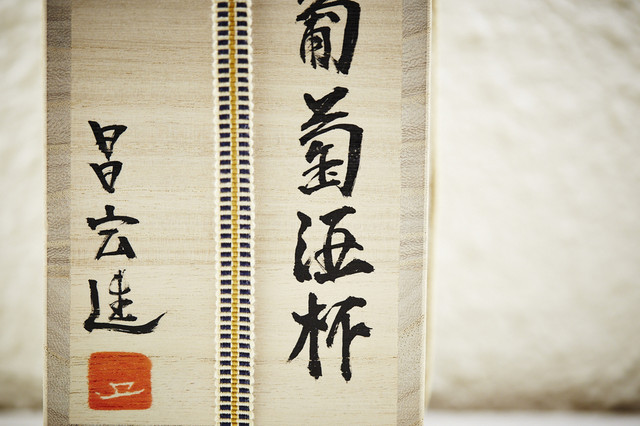 葡萄酒杯
昌宏造